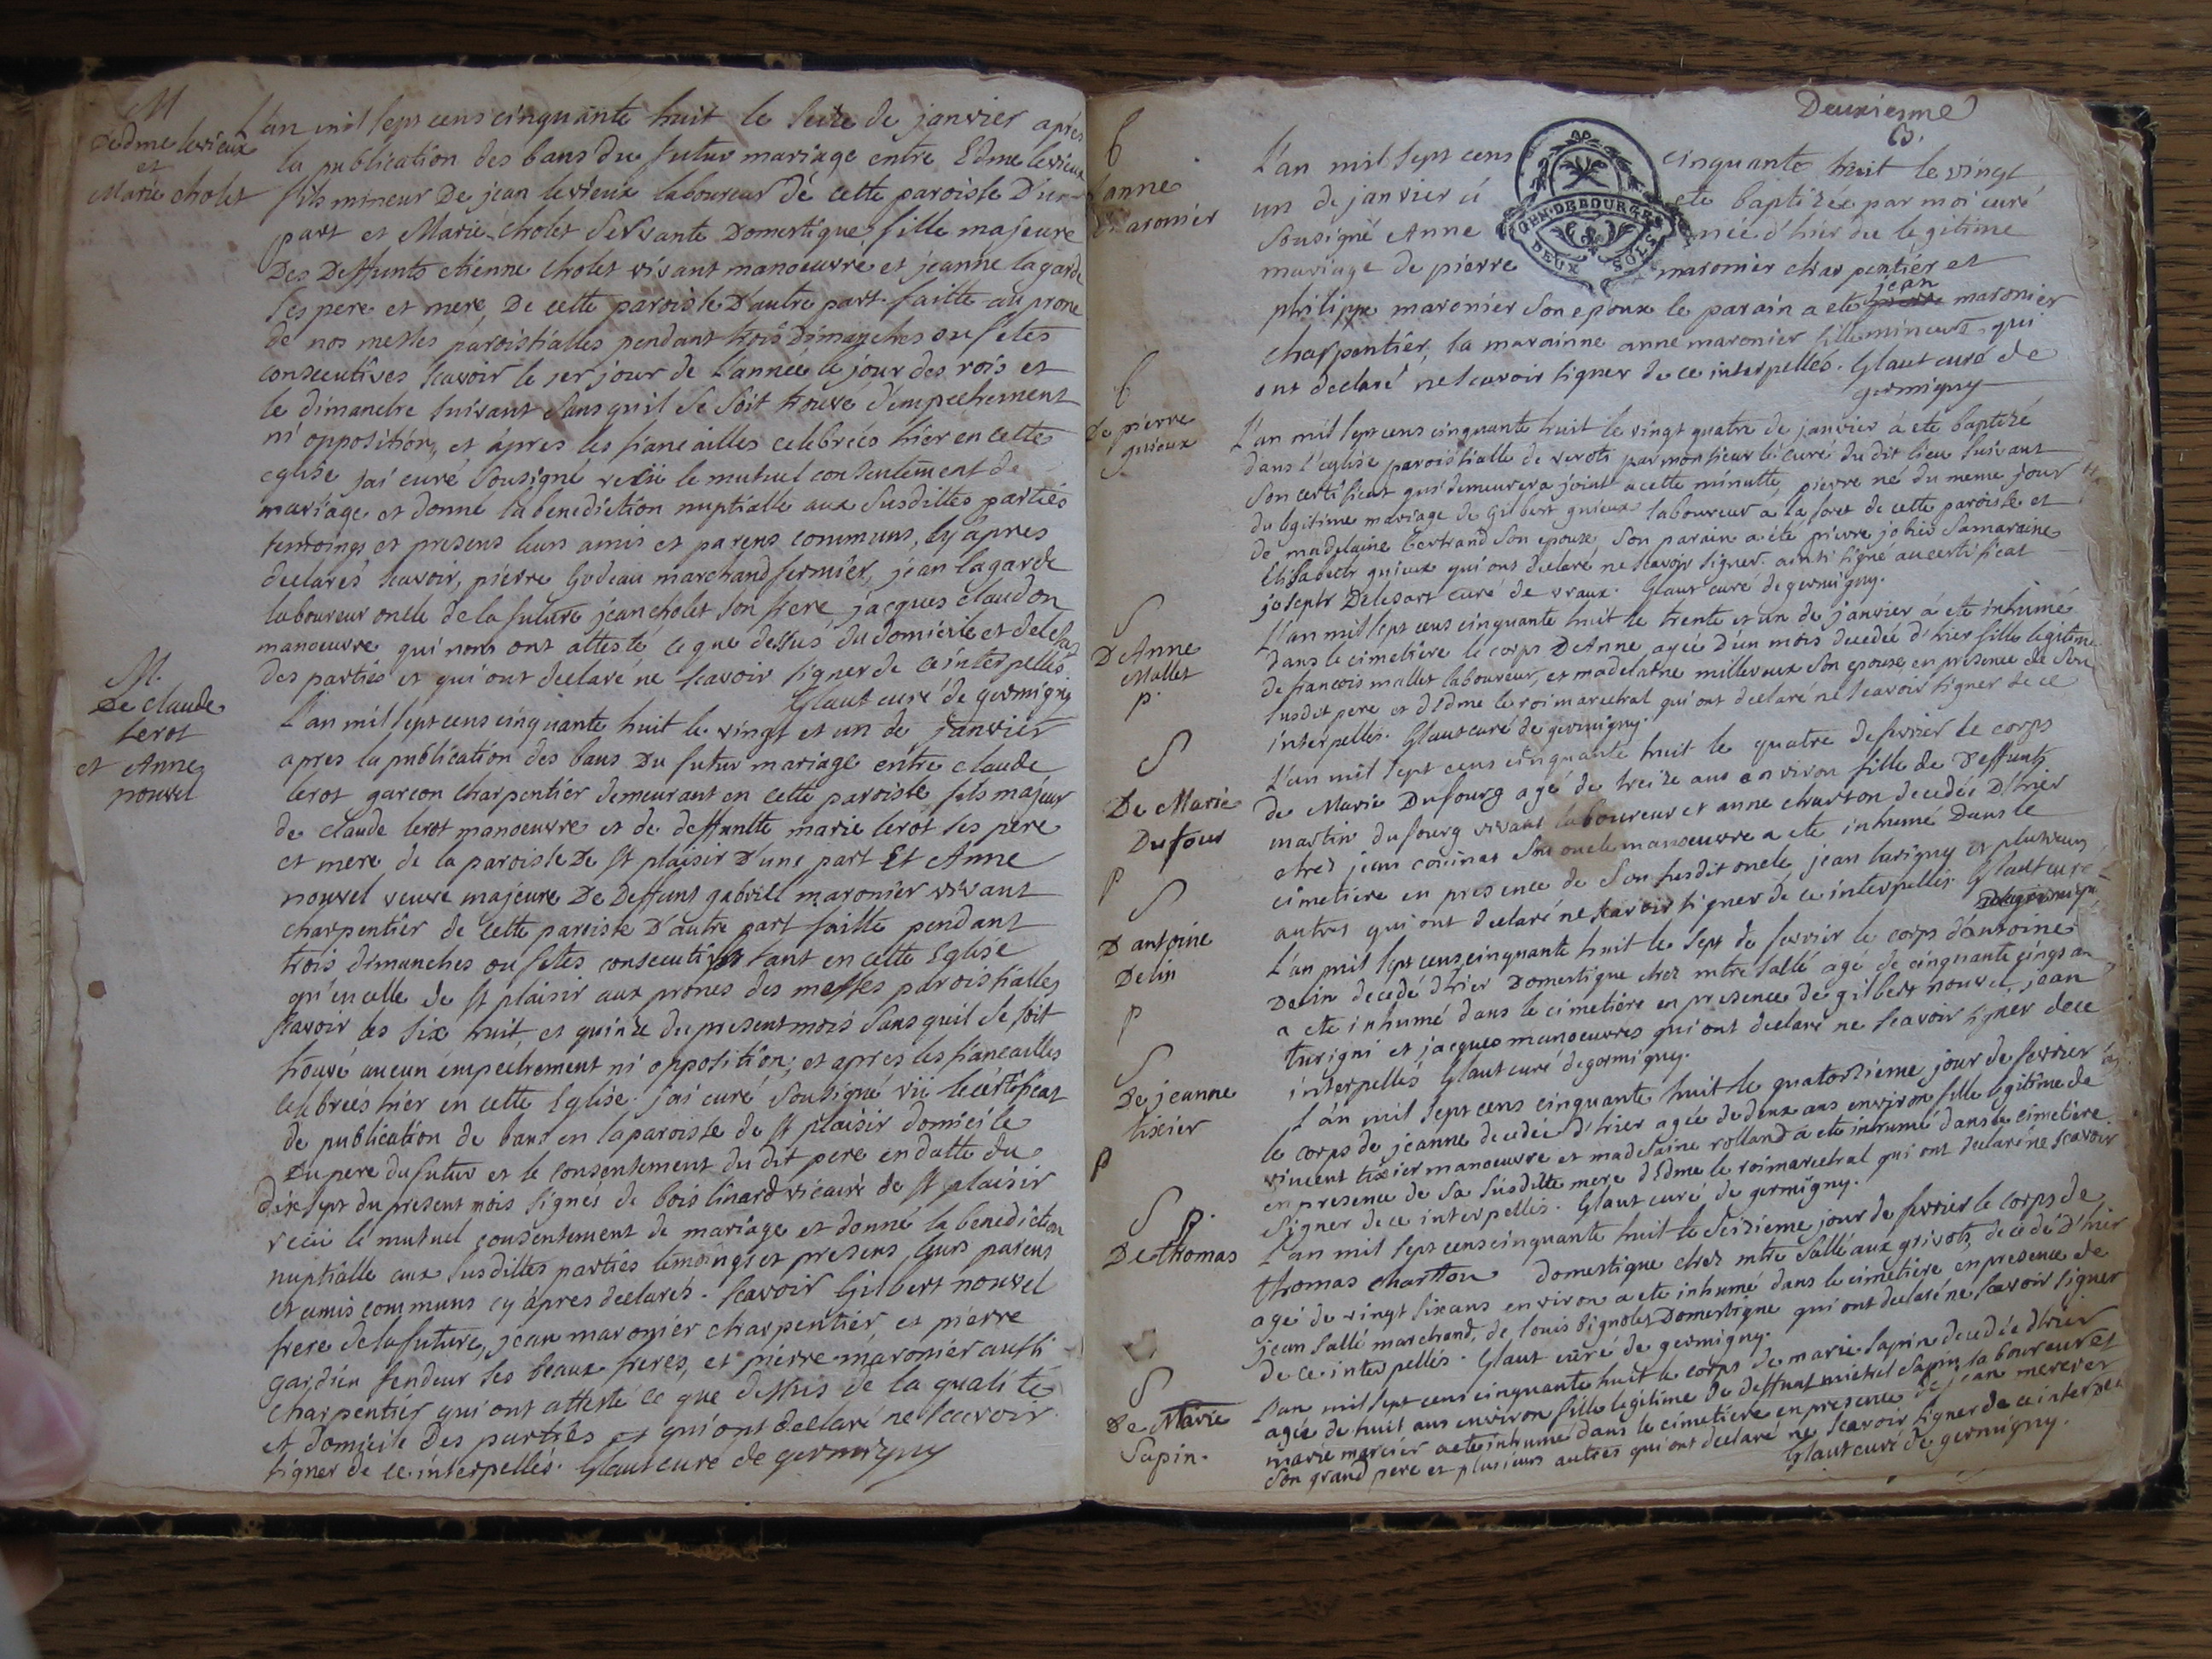 M
D'edme levieux
et
Marie cholet
L'an mil sept cens cinquante huit le seize de janvier apres
la publication des bans du futur mariage entre Edme levieux
fils mineur De jean levieux laboureur de cette paroisse D'une
part et Marie cholet Servante Domestique, fille majeure
Des Deffunts etienne cholet vivant manoeuvre et jeanne lagarde
ses pere et mere, De cette paroisse D'autre part faitte au prone
de nos messes paroissialles pendant trois Dimanches ou fetes
consecutives scavoir le 1er jour de L'année le jour des rois et
le dimanche suivant sans quil se soit trouvé d'empechement
ni opposition, et apres les fiancailles celebrées hier en cette
eglise jai curé sousigné recü le mutuel consentement de
mariage et donné la benediction nuptialle aux susdittes parties
temoings et presens leurs amis et parens communs, cy apres
declarés scavoir, pierre Godeau marchand fermier, jean lagarde
laboureur oncle de la future jean cholet son frere jacques claudon
manoeuvre qui nous ont attesté ce que dessus du domicile et de
des parties et qui ont declaré ne scavoir signer de ce interpellés
Glaut curé de germigny
M.
De claude
lerot
et Anne
nouvel
L'an mil sept cens cinquante huit le vingt et un de janvier
apres la publication des bans Du futur mariage entre claude
lerot garcon charpentier demeurant en cette paroisse fils majeur
de claude lerot manoeuvre et de deffuntte marie lerot ses pere
et mere de la paroisse De st plaisir D'une part Et Anne
nouvel veuve majeure De Deffunt gabriel maronier vivant
charpentier de cette paroisse D'autre part faitte pendant
trois dimanches ou fetes consecutives tant en cette Eglise
qu'en celle de st plaisir aux prones des messes paroissialles
scavoir les six huit, et quinze du present mois sans quil se soit
trouvé aucun empechement ni opposition; et apres les fiancailles
celebrées hier en cette Eglise. jai curé sousigné vü le certificat
de publication de bans en la paroisse de st plaisir domicile
Du pere du futur et le consentement du dit pere en datte du
dix sept du present mois signés de bois linard vicaire de st plaisir
recü le mutuel consentement de mariage et donné la benediction
nuptialle aux susdittes parties temoings et presens leurs parens
et amis communs cy apres declarés. scavoir Gilbert nouvel
frere de la future, jean maronier charpentier et pierre
gardien fendeur ses beaux freres, et pierre maronier aussi
charpentier qui ont attesté ce que dessus de la qualité
et domicile des parties et qui ont declaré ne scavoir
signer de ce interpellés. Glaut curé de germigny
Deuxiesme
B.
GEN. DE BOURGES
DEUX SOLS
b
D'anne
maronier
L'an mil sept cens cinquante huit le vingt
un de janvier a été baptizée par moi curé
sousigné Anne née d'hier du legitime
mariage de pierre maronier charpentier et
philippe maronier son epouse le parain a ete jean maronier
charpentier, la marainne anne maronier fille mineure qui
ont declaré ne scavoir signer de ce interpellés. Glaut curé de
germigny
b
De pierre
gnieux
L'an mil sept cens cinquante huit le vingt quatre de janvier à ete baptizé
dans l'eglise paroissialle de par monsieur le curé du dit lieu suivant
son certificat qui demeurera joint a cette minutte, pierre né du meme jour
du legitime mariage de Gilbert gnieux laboureur a la foret de cette paroisse et
de madelaine Bertrand son epouse, son parain a été pierre jobier sa maraine
Elisabeth gnieux qui ont declaré ne scavoir signer. ainsi signé au certificat
joseph Delesart curé de vraux. Glaut curé de germigny.
S
D'Anne
Mallet
p.
L'an mil sept cens cinquante huit le trente et un de janvier à ete inhumé
dans le cimetiere le corps D'Anne agée D'un mois decedée d'hier fille legitime
de francois mallet laboureur, et madelaine millereux son epouse en presence de son
susdit pere et d'Edme le roi marechal qui ont declaré ne scavoir signer de ce
interpellés. Glaut curé de germigny.
S
De Marie
Dufour
p
L'an mil sept cens cinquante huit le quatre de fevrier le corps
de Marie Dufourg agé de treize ans environ fille de Deffunts
martin dufourg vivant laboureur et anne charton decedée D'hier
chez jean son oncle manoeuvre a ete inhumé Dans le
cimetiere en presence de son susdit oncle jean turigny et plusieurs
autres qui ont declaré ne scavoir signer de ce interpellés. Glaut curé
de germigny
S
D'antoine
Delin
p
L'an mil sept cens cinquante huit le sept de fevrier le corps d'antoine
Delin decedé d'hier Domestique chez mtre sallé agé de cinquante cinq an
a ete inhumé dans le cimetiere en presence de gilbert nouvel, jean
turigni et jacques manoeuvres qui ont declaré ne scavoir signer de ce
interpellés Glaut curé de germigny.
S
De jeanne
tixier
p
L'an mil sept cens cinquante huit le quatorsieme jour de fevrier
le corps de jeanne decedée d'hier agée de deux ans environ fille legitime de
vincent tixier manoeuvre et madelaine rolland à ete inhumé dans le cimetiere
en presence de sa susditte mere d'Edme le roi marechal qui ont declaré ne scavoir
signer de ce interpellés. Glaut curé de germigny.
S p.
De thomas
L'an mil sept cens cinquante huit le seizieme jour de fevrier le corps de
thomas charton domestique chez mtre sallé aux grivots, decedé d'hier
agé de vingt six ans environ a ete inhumé dans le cimetiere en presence de
jean sallé marchand, de louis vignolet Domestique qui ont declaré ne scavoir signer
de ce interpellés. Glaut curé de germigny.
S
De Marie
Sapin.
L'an mil sept cens cinquante huit le corps de marie sapin decedée d'hier
agée de huit ans environ fille legitime de deffunt michel sapin laboureur et
marie mercier a ete inhumé dans le cimetiere en presence de jean mercier
son grand pere et plusieurs autres qui ont declaré ne scavoir signer de ce
Glaut curé de germigny.